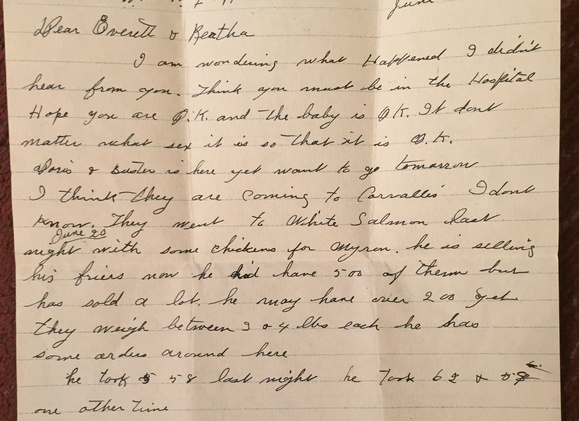 June
Dear Everett & Bertha
I am wondering what Happened I didn't
hear from you. Think you must be in the Hospital
Hope you are O.K. and the baby is O.K. It dont
matter what sex it is so that it is O.K.
Doris & Buster is here yet want to go tomorrow
I think they are coming to Corvallis I dont
know. They went to White Salmon last
June 20
night with some chickens for Myron. he is selling
his friers now he did have 500 of them but
has sold a lot. he may have over 200 yet
they weigh between 3 & 4 lbs each he has
some orders around here
he took 58 last night he took 62 &
one other time